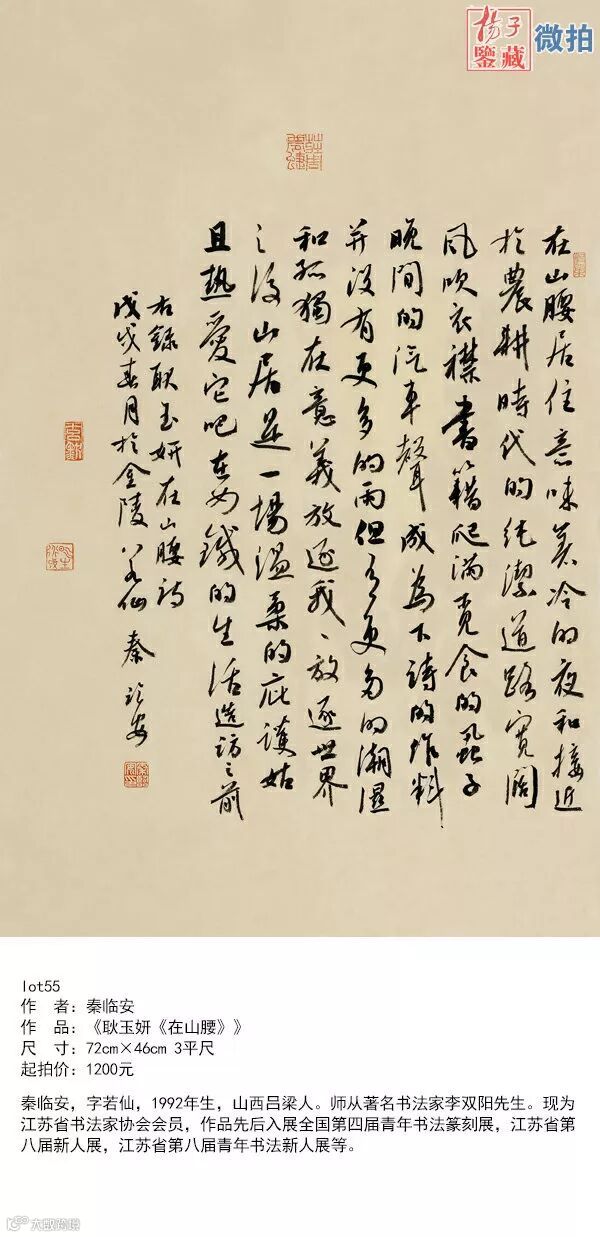 揚子
鑒藏
微拍
在山腰居住意味着冷的夜和接近
於農耕時代的純潔道路寬闊
风吹衣襟書籍爬满觅食的虱子
晚间的汽車聲成為下詩的作料
并没有更多的雨但有更多的潮濕
和孤獨在意義放逐我、放逐世界
之後山居是一場温柔的庇護姑
且熱愛它吧在如鐵的生活造訪之前
右錄耿玉妍在山腰詩
戊戌春月於金陵 若仙 秦临安
lot55
作 者：秦临安
作 品：《耿玉妍《在山腰》》
尺 寸：72cm×46cm 3平尺
起拍价：1200元
秦临安，字若仙，1992年生，山西吕梁人。师从著名书法家李双阳先生。现为
江苏省书法家协会会员，作品先后入展全国第四届青年书法篆刻展，江苏省第
八届新人展，江苏省第八届青年书法新人展等。